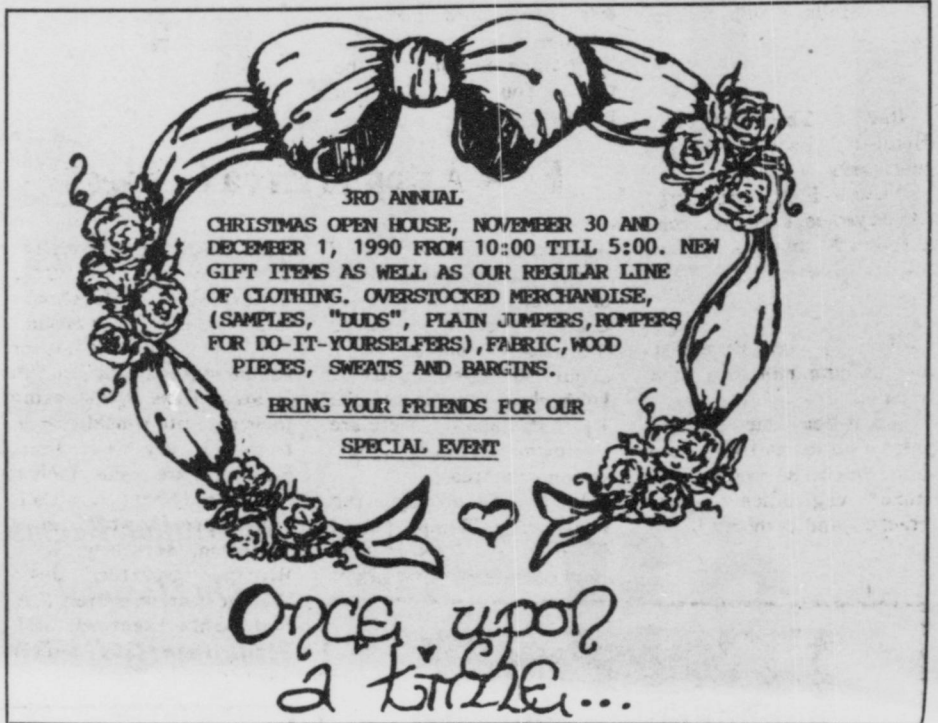 3RD ANNUAL
CHRISTMAS OPEN HOUSE, NOVEMBER 30 AND
DECEMBER 1, 1990 FROM 10:00 TILL 5:00. NEW
GIFT ITEMS AS WELL AS OUR REGULAR LINE
OF CLOTHING. OVERSTOCKED MERCHANDISE,
(SAMPLES, "DUDS", PLAIN JUMPERS,ROMPERS
FOR DO-IT-YOURSELFERS),FABRIC,WOOD
PIECES, SWEATS AND BARGINS.
BRING YOUR FRIENDS FOR OUR
SPECIAL EVENT
Once upon
a time...